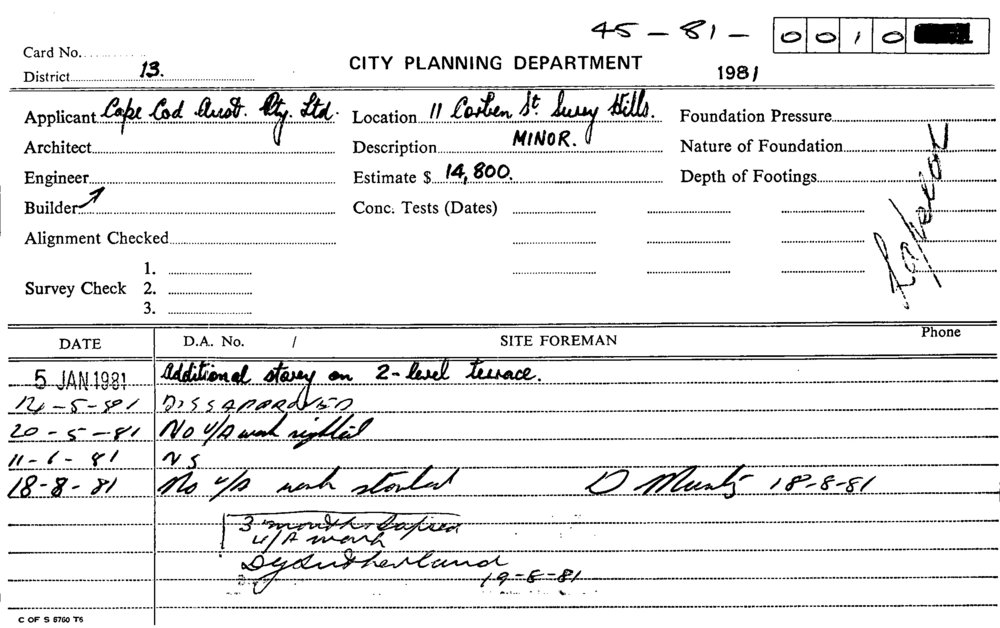 45-81- 0010
Card No.
District 13.
CITY PLANNING DEPARTMENT
1981
Applicant Cape Cod Aust. Pty. Ltd.
Location 11 Corben St. Surry Hills.
Foundation Pressure
Architect
Description MINOR.
Nature of Foundation
Engineer
Estimate $ 14,800.
Depth of Footings
Builder
Conc. Tests (Dates)
Alignment Checked
Survey Check
1.
2.
3.
DATE D.A. No. / SITE FOREMAN Phone
5 JAN 1981 Additional storey on 2-level terrace.
14-5-81 DISSAPPROVED
20-5-81 No U/A work sighted
11-6-81 NS
18-8-81 No U/A work started D 18-8-81
3 months lapsed
U/A work
Sutherland
19-8-81
C OF S 6760 T6